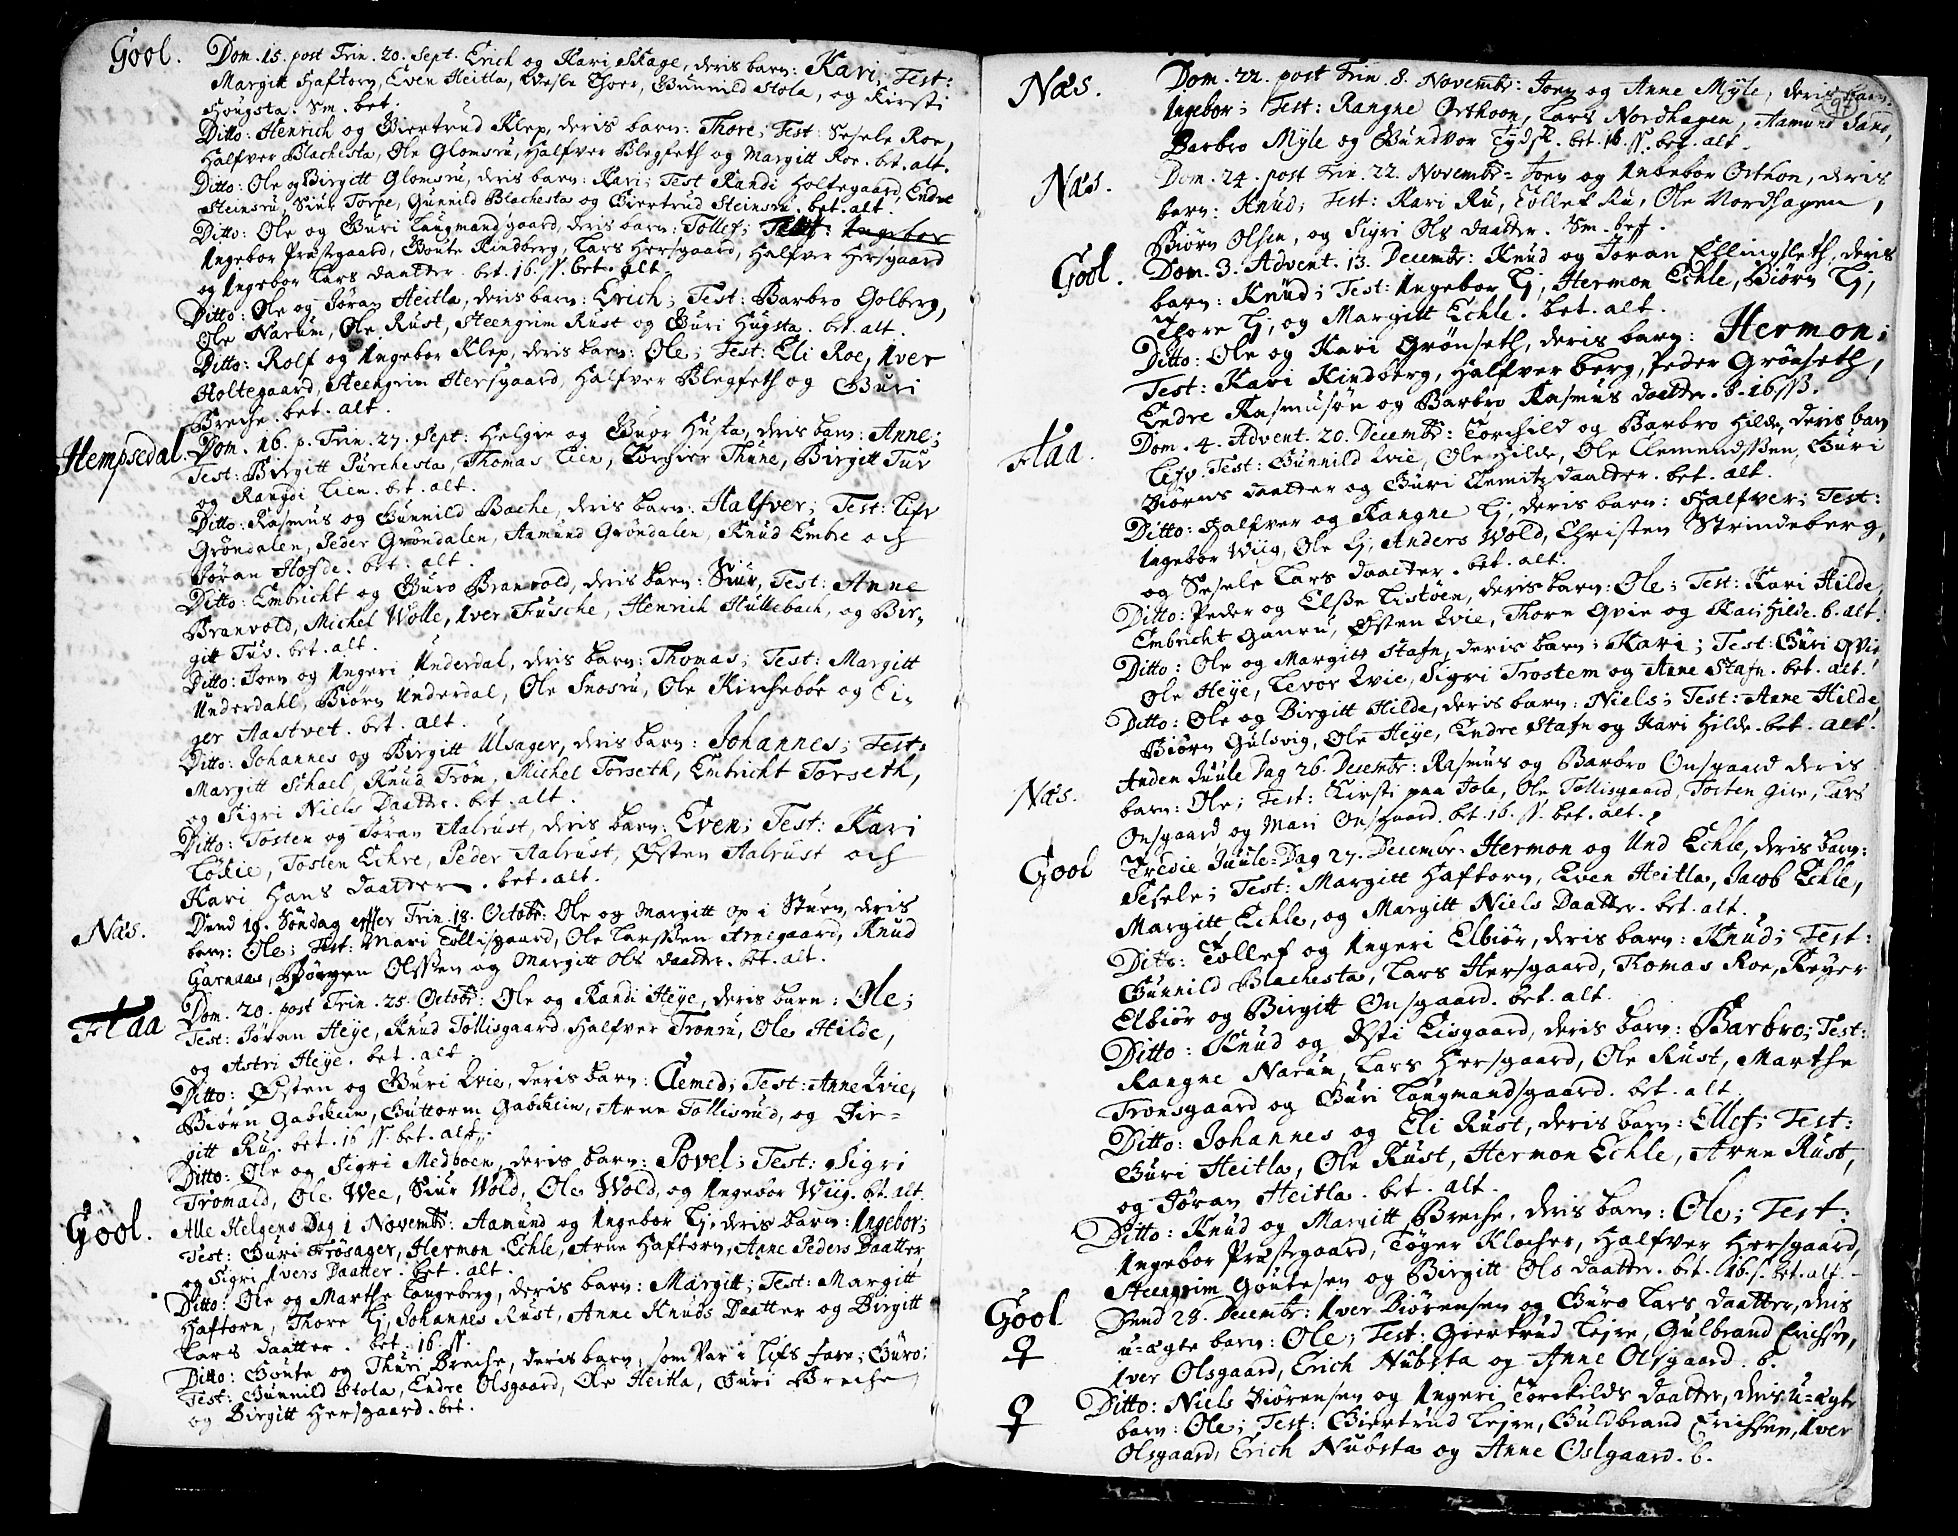 Gool. Dom. 15. post Trin. 20. Sept. Erich og Kari Skage, deris barn: Kari; Test:
Margitt Haftorn, Even Heitla, Thore, Gunnild Stola, og Kirsti
Hougsta. Sm. bet.
Ditto: Henrich og Giertrud Klep, deris barn: Thore; Test: Sesele Roe,
Halfver Blachesta, Ole Glomsru, Halfver Blegfeth og Margitt Roe. bet. alt.
Ditto: Ole og Birgitt Glomsru, deris barn: Kari; Test Randi Holtegaard, Endre
Steinsru, Siur Torpe, Gunnild Blachesta og Giertrud Steinsru. bet. alt.
Ditto: Ole og Guri Laugmandsgaard, deris barn: Tollef; Test: Ingebor
Ingebor Præstgaard, Goute Kindberg, Lars Hersgaard, Halfver Hersgaard
og Ingebor Lars daatter. bet. 16. ß. bet. alt.
Ditto: Ole og Jøran Heitla, deris barn: Erich; Test: Barbro Golberg,
Ole Narum, Ole Rust, Steengrim Rust og Guri Hugsta. bet. alt.
Ditto: Rolf og Ingebor Klep, deris barn: Ole; Test: Eli Roe, Iver
Holtegaard, Steengrim Hersgaard, Halfver Blegfeth og Guri
Breche. bet. alt.
Hempsedal. Dom. 16. p. Trin. 27. Sept: Helgie og Guor Husta, deris barn: Anne;
Test: Birgitt Purchesta, Thomas Lien, Torgier Thune, Birgitt Tuv
og Rangdi Lien. bet. alt.
Ditto: Rasmus og Gunnild Bache, deris barn: Halfver; Test: Lifv
Grøndalen, Peder Grøndalen, Aamund Grøndalen, Knud Embre och
Jøran Hofde. bet. alt.
Ditto: Embricht og Guro Branvold, deris barn: Siur, Test: Anne
Branvold, Michel Wolle, Iver Fusche, Henrich Hullebach, og Bir-
gitt Tuv. bet. alt.
Ditto: Joen og Ingeri Underdal, deris barn: Thomas; Test: Margitt
Underdahl, Biørn Underdal, Ole Snosru, Ole Kirchebøe og Ei-
ger Aastvet. bet. alt.
Ditto: Johannes og Birgitt Ulsager, deris barn: Johannes; Test:
Margitt Schael, Knud Trøm, Michel Torseth, Embricht Torseth,
og Sigri Niels Daatter. bet. alt.
Ditto: Tosten og Jøran Aalrust, deris barn: Even; Test: Kari
Løkie, Tosten Echre, Peder Aalrust, Østen Aalrust och
Kari Hans daatter. bet. alt.
Næs. Dend 19. Søndag effter Trin. 18. Octobr: Ole og Margitt op i Stuen, deris
barn: Ole; Test: Mari Tollisgaard, Ole Larssen Arnegaard, Knud
Garnaas, Jørgen Olssen og Margitt Ols daatter. bet. alt.
Flaa Dom. 20. post Trin. 25. Octobr: Ole og Randi Heye, deris barn: Ole;
Test: Jøran Heye, Knud Tollisgaard, Halfver Tronru, Ole Hilde,
og Astri Heye. bet. alt.
Ditto: Østen og Guri Qvie, deris barn: Clemed; Test: Anne Qvie,
Biørn Gabskein, Guttorm Gabskein, Arne Tollisrud, og Bir-
gitt Ru. bet. 16 ß. bet. alt.
Ditto: Ole og Sigri Medboen, deris barn: Povel; Test: Sigri
Tromald, Ole Wee, Siur Wold, Ole Wold, og Ingebor Wiig. bet. alt.
Gool. Alle Helgens Dag 1 Novembr: Aamund og Ingebor Li, deris barn: Ingebor;
Test: Guri Frøsager, Hermon Echle, Arne Haftorn, Anne Peders Daatter
og Sigri Ivers Daatter. bet. alt.
Ditto: Ole og Marthe Langeberg, deris barn: Margitt; Test: Margitt
Haftorn, Thore Li, Johannes Rust, Anne Knuds Daatter og Birgitt
Lars daatter. bet. 16 ß.
Ditto: Goute og Thuri Breche, deris barn, som var i Lifs fare; Guro;
Test: Gunnild Stola, Endre Olsgaard, Ole Heitla, Guri Breche
og Birgitt Hersgaard. bet.
Næs. Dom. 22. post Trin. 8. Novembr: Joen og Anne Myle, deris barn:
Ingebor; Test: Rangne Orthoon, Lars Nordhagen, Aamund Sand,
Barbro Myle og Gundvor Tydsk. bet. 16. ß. bet. alt.
Næs. Dom. 24. post Trin. 22. Novembr: Joen og Ingebor Orthon, deris
barn: Knud; Test: Kari Ru, Tollef Ru, Ole Nordhagen,
Biørn Olsen, og Sigri Ols daatter. Sm. bet.
Gool. Dom. 3. Advent. 13. Decembr: Knud og Jøran Ellingseth, deris
barn: Knud; Test: Ingebor Li, Hermon Echle, Biørn Li,
Thore Li, og Margitt Echle. bet. alt.
Ditto: Ole og Kari Grønseth, deris barn: Hermon;
Test: Kari Kindberg, Halfver Berg, Peder Grønseth,
Endre Rasmusøn og Barbro Rasmus daatter. b. 16 ß.
Flaa. Dom. 4. Advent. 20. Decembr: Torchild og Barbro Hilde, deris barn
Lifv. Test: Gunnild Qvie, Ole Hilde, Ole Clemendssen, Guri
Biørns daatter og Guri Clemitz daatter. bet. alt.
Ditto: Halfver og Rangne Li, deris barn: Halfver; Test:
Ingebor Wiig, Ole Li, Anders Wold, Christen Strindeberg,
og Sesele Lars daatter. bet. alt.
Ditto: Peder og Elsße Listøen, deris barn: Ole; Test: Kari Hilde,
Embricht Ganru, Østen Qvie, Thore Qvie og Kari Hilde. b. alt.
Ditto: Ole og Margitt Stafn, deris barn: Kari; Test: Guri Qvie
Ole Heye, Levor Qvie, Sigri Trostem og Anne Stafn. bet. alt.
Ditto: Ole og Birgitt Hilde, deris barn: Niels; Test: Anne Hilde,
Biørn Gulsvig, Ole Heye, Endre Stafn og Kari Hilde. bet. alt.
Næs. Anden Juule Dag 26. Decembr: Rasmus og Barbro Onsgaard deris
barn: Ole; Test: Kirsti paa Jola, Ole Tollisgaard, Tosten Gire, Lars
Onsgaard og Mari Onsgaard. bet. 16. ß. bet. alt.
Gool Tredie Juule-Dag 27. Decembr. Hermon og Und Echle, deris barn:
Sesele; Test: Margitt Haftorn, Even Heitla, Jacob Echle,
Margitt Echle, og Margitt Niels Daatter. bet. alt.
Ditto: Tollef og Ingeri Elbiør, deris barn: Knud; Test:
Gunnild Blachesta, Lars Hersgaard, Thomas Roe, Reyer
Elbiør og Birgitt Onsgaard. bet. alt.
Ditto: Knud og Østi Eisgaard, deris barn: Barbro; Test:
Rangne Narum, Lars Hersgaard, Ole Rust, Marthe
Tronsgaard og Guri Laugmandsgaard. bet. alt.
Ditto: Johannes og Eli Rust, deris barn: Ellef; Test:
Guri Heitla, Ole Rust, Hermon Echle, Arne Rust,
og Jøran Heitla. bet. alt.
Ditto: Knud og Margitt Breche, deris barn: Ole; Test:
Ingebor Præstgaard, Tøger Klocher, Halfver Hersgaard,
Steengrim Goutesen og Birgitt Ols daatter. bet. 16. ß. bet. alt.
Gool Dend 28. Decembr: Iver Biørensen og Guro Lars daatter, deris
u=ægte barn: Ole; Test: Giertrud Lejre, Gulbrand Erichsen,
Iver Olsgaard, Erich Nubsta og Anne Olsgaard. b.
Ditto: Niels Biørensen og Ingeri Torchilds daatter, deris u=ægte
barn: Ole; Test: Giertrud Lejre, Guldbrand Erichsen, Iver
Olsgaard, Erich Nubsta og Anne Oslgaard. b.